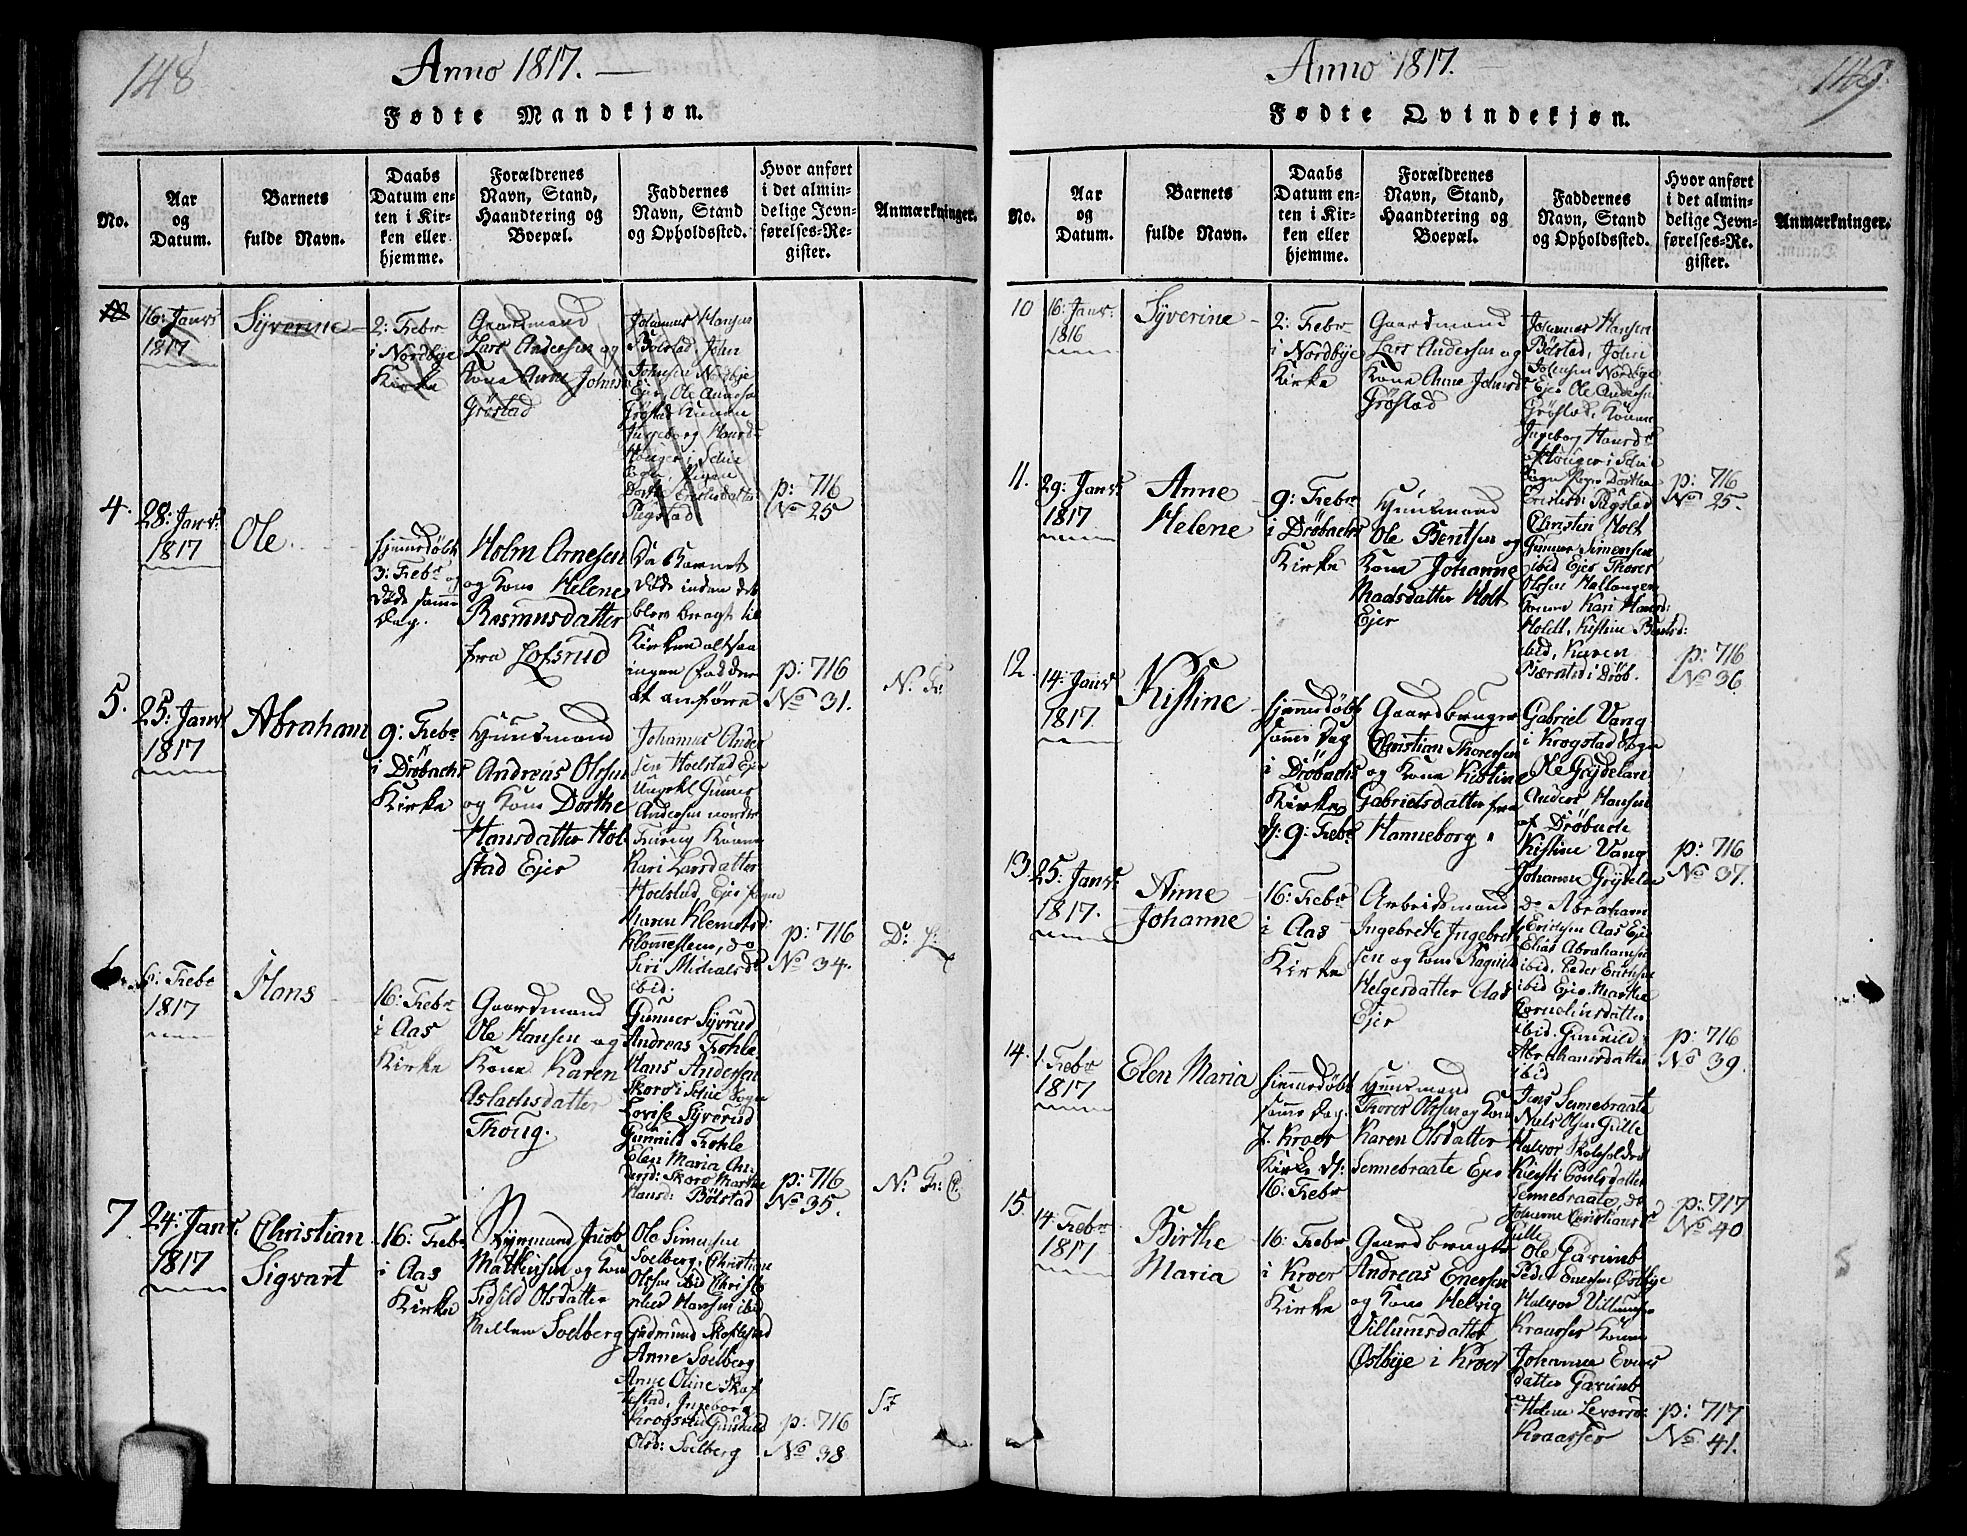 148
Anno 1817.
Fødte Mandkjøn.
No.
Aar
og
Datum.
Barnets
fulde Navn.
Daabs
Datum en-
ten i Kir-
ken eller
hjemme.
Forældrenes
Navn, Stand,
Haandtering og
Boepæl.
Faddernes
Navn, Stand
og Opholdssted.
Hvor anført
i det almin-
delige Jevn-
førelses-Re-
gister.
Anmærkninger.
10
16: Janr
1817
Syverine
2: Febr
i Nordbye
Kirke
Gaardmand
Lars Andersen og
Kone Anne Johnsd
Grøstad
Johannes Hansen
Bölstad, John
Johnsen Nordbye
Ejer Ole Anders
Grøstad Konen
Ingeborg Hansd
Houger i Schie
Sogn Pigen
Dorthe Erichsdatter
Rigstad
p: 716
No 25
4.
28: Janr:
1817
Ole
hjemmedöbt
3: Febr og
döde samme
Dag.
Holm Arnesen
og Kone Helene
Rasmusdatter
fra Lofsrud
Da Barnet
döde inden det
blev bragt til
Kirken altsaa
ingen Faddere
at anföre
p: 716
No 31.
N: Fr:
5.
25: Janr
1817
Abraham
9: Febr
i Dröbachs
Kirke
Huusmand
Andreas Olssen
og Kone Dorthe
Hansdatter Hol-
stad Ejer
Johannes Ander
sen Hoelstad Ejer
Ungkl Gunner
Andersen nordre
Kone
Kari Larsdatter
Hoelstad, Ejer Pigen
Maren Klemetsd:
do
Siri Michelsd
ibid:
p: 716
No 34.
D: f:
6.
6: Febr
1817
Hans
16: Febr
i Aas
Kirke
Gaardmand
Ole Hansen og
Kone Karen
Aslachsdatter
Thoug.
Gunner Syvrud
Andreas Frohle
Hans Andersen
Skoro i Schie Sogn
Lovise Syverud
Gunnild Frohle
Elen Maria An-
dersd: Skoro Marthe
Hansd: Bölstad
p: 716
No 35.
N: Fr:
7.
24: Janr.
1817
Christian
Sigvart
16: Febr
i Aas
Kirke
Jacob
Mathisen og Kone
Sidsild Olsdatter
Mellem Soelberg
Ole Simensen
Soelberg, Christian
Olssen ibid Christo
pher Hansen ibid
Gudmund Skoftestad
Anne Soelberg
Anne Oline Skof
testad, Ingeborg
Krogstie Gunild
Olsd: Soelberg
p: 716
No 38
St
149.
Anno 1817.
Fødte Qvindekjøn.
No.
Aar
og
Datum.
Barnets
fulde Navn.
Daabs
Datum en-
ten i Kir-
ken eller
hjemme.
Forældrenes
Navn, Stand,
Haandtering og
Boepæl.
Faddernes
Navn, Stand
og Opholdssted.
Hvor anført
i det almin-
delige Jevn-
førelses-Re-
gister.
Anmærkninger.
10
16: Janr.
1816
Syverine
2: Febr
i Nordbye
Kirke
Gaardmand
Lars Andersen og
Kone Anne Johnsd
Gröstad
Johannes Hansen
Bölstad, John
Johnsen Nordbye
Ejer Ole Andersen
Gröstad, Konen
Ingeborg Hansd
Houger i Schie
Sogn Pigen Dorthea
Erichsd: Rigstad
p: 716
No 25.
11.
29: Janr:
1817
Anne
Helene
9: Febr
i Dröbachs
Kirke
Huusmand
Ole Bentsen og
Kone Johanne
Madsdatter Holt
Ejer
Christen Holt
Gunner Simensen
ibid Ejer Thorer
Olssen Hallangen
Konen Kari Hansd:
Holdt, Kistine Bentsd:
ibid, Karen
Bærstad i Dröb.
p: 716
No 36
12.
14: Janr
1817.
Kistine
hjemmedöbt
samme Dag
i Dröbachs
Kirke
d: 9: Febr
Gaardbruger
Christian Thoresen
og Kone Kistine
Gabrielsdatter fra
Hanneborg
Gabriel Vang
i Krogstad Sogn
Ole Grydeland
Anders Hansen
af Dröbach
Kistine Vang
Johanne Grydeland
p: 716
No 37.
13.
25: Janr.
1817.
Anne
Johanne
16: Febr
i Aas
Kirke
Arbeidsmand
Ingebreth Ingebreth
sen og Kone Ragnild
Helgesdatter Aas
Ejer
do Abraham
Erichsen Aas Ejer
Elias Abrahamsen
ibid. Peder Erichsen
ibid Ejer. Marthe
Corneliusdatter
ibid. Gunnild
Abrahamsdatter
ibid
p: 716
No 39.
14.
1. Febr
1817
Elen Maria
hjemmedöbt
samme Dag.
J. Kroer
Kirke d:
16: Febr
Huusmand
Thorer Olssen og Kone
Karen Olsdatter
Sennebraate Ejer
Jens Sennebraate
Niels Olsen Gulle
Halvor Skolehold
Kiersti Poulsdatter
Sennebraate, do
Johanne Christiansd
Gulle
p: 717
No 40
15
14 Febr
1817
Birthe
Maria
16: Febr
i Kroer
Kirke
Gaardbruger
Andreas Enersen
og Kone Helvig
Villumsdatter
Östbye i Kroer
Ole Garumb
Peder Enersen Östbye
Halvor Villumsen
Kraarser Konen
Johanne Evers
datter Garumb
Helene Levorsd:
Kraarser
p: 717
No. 41.